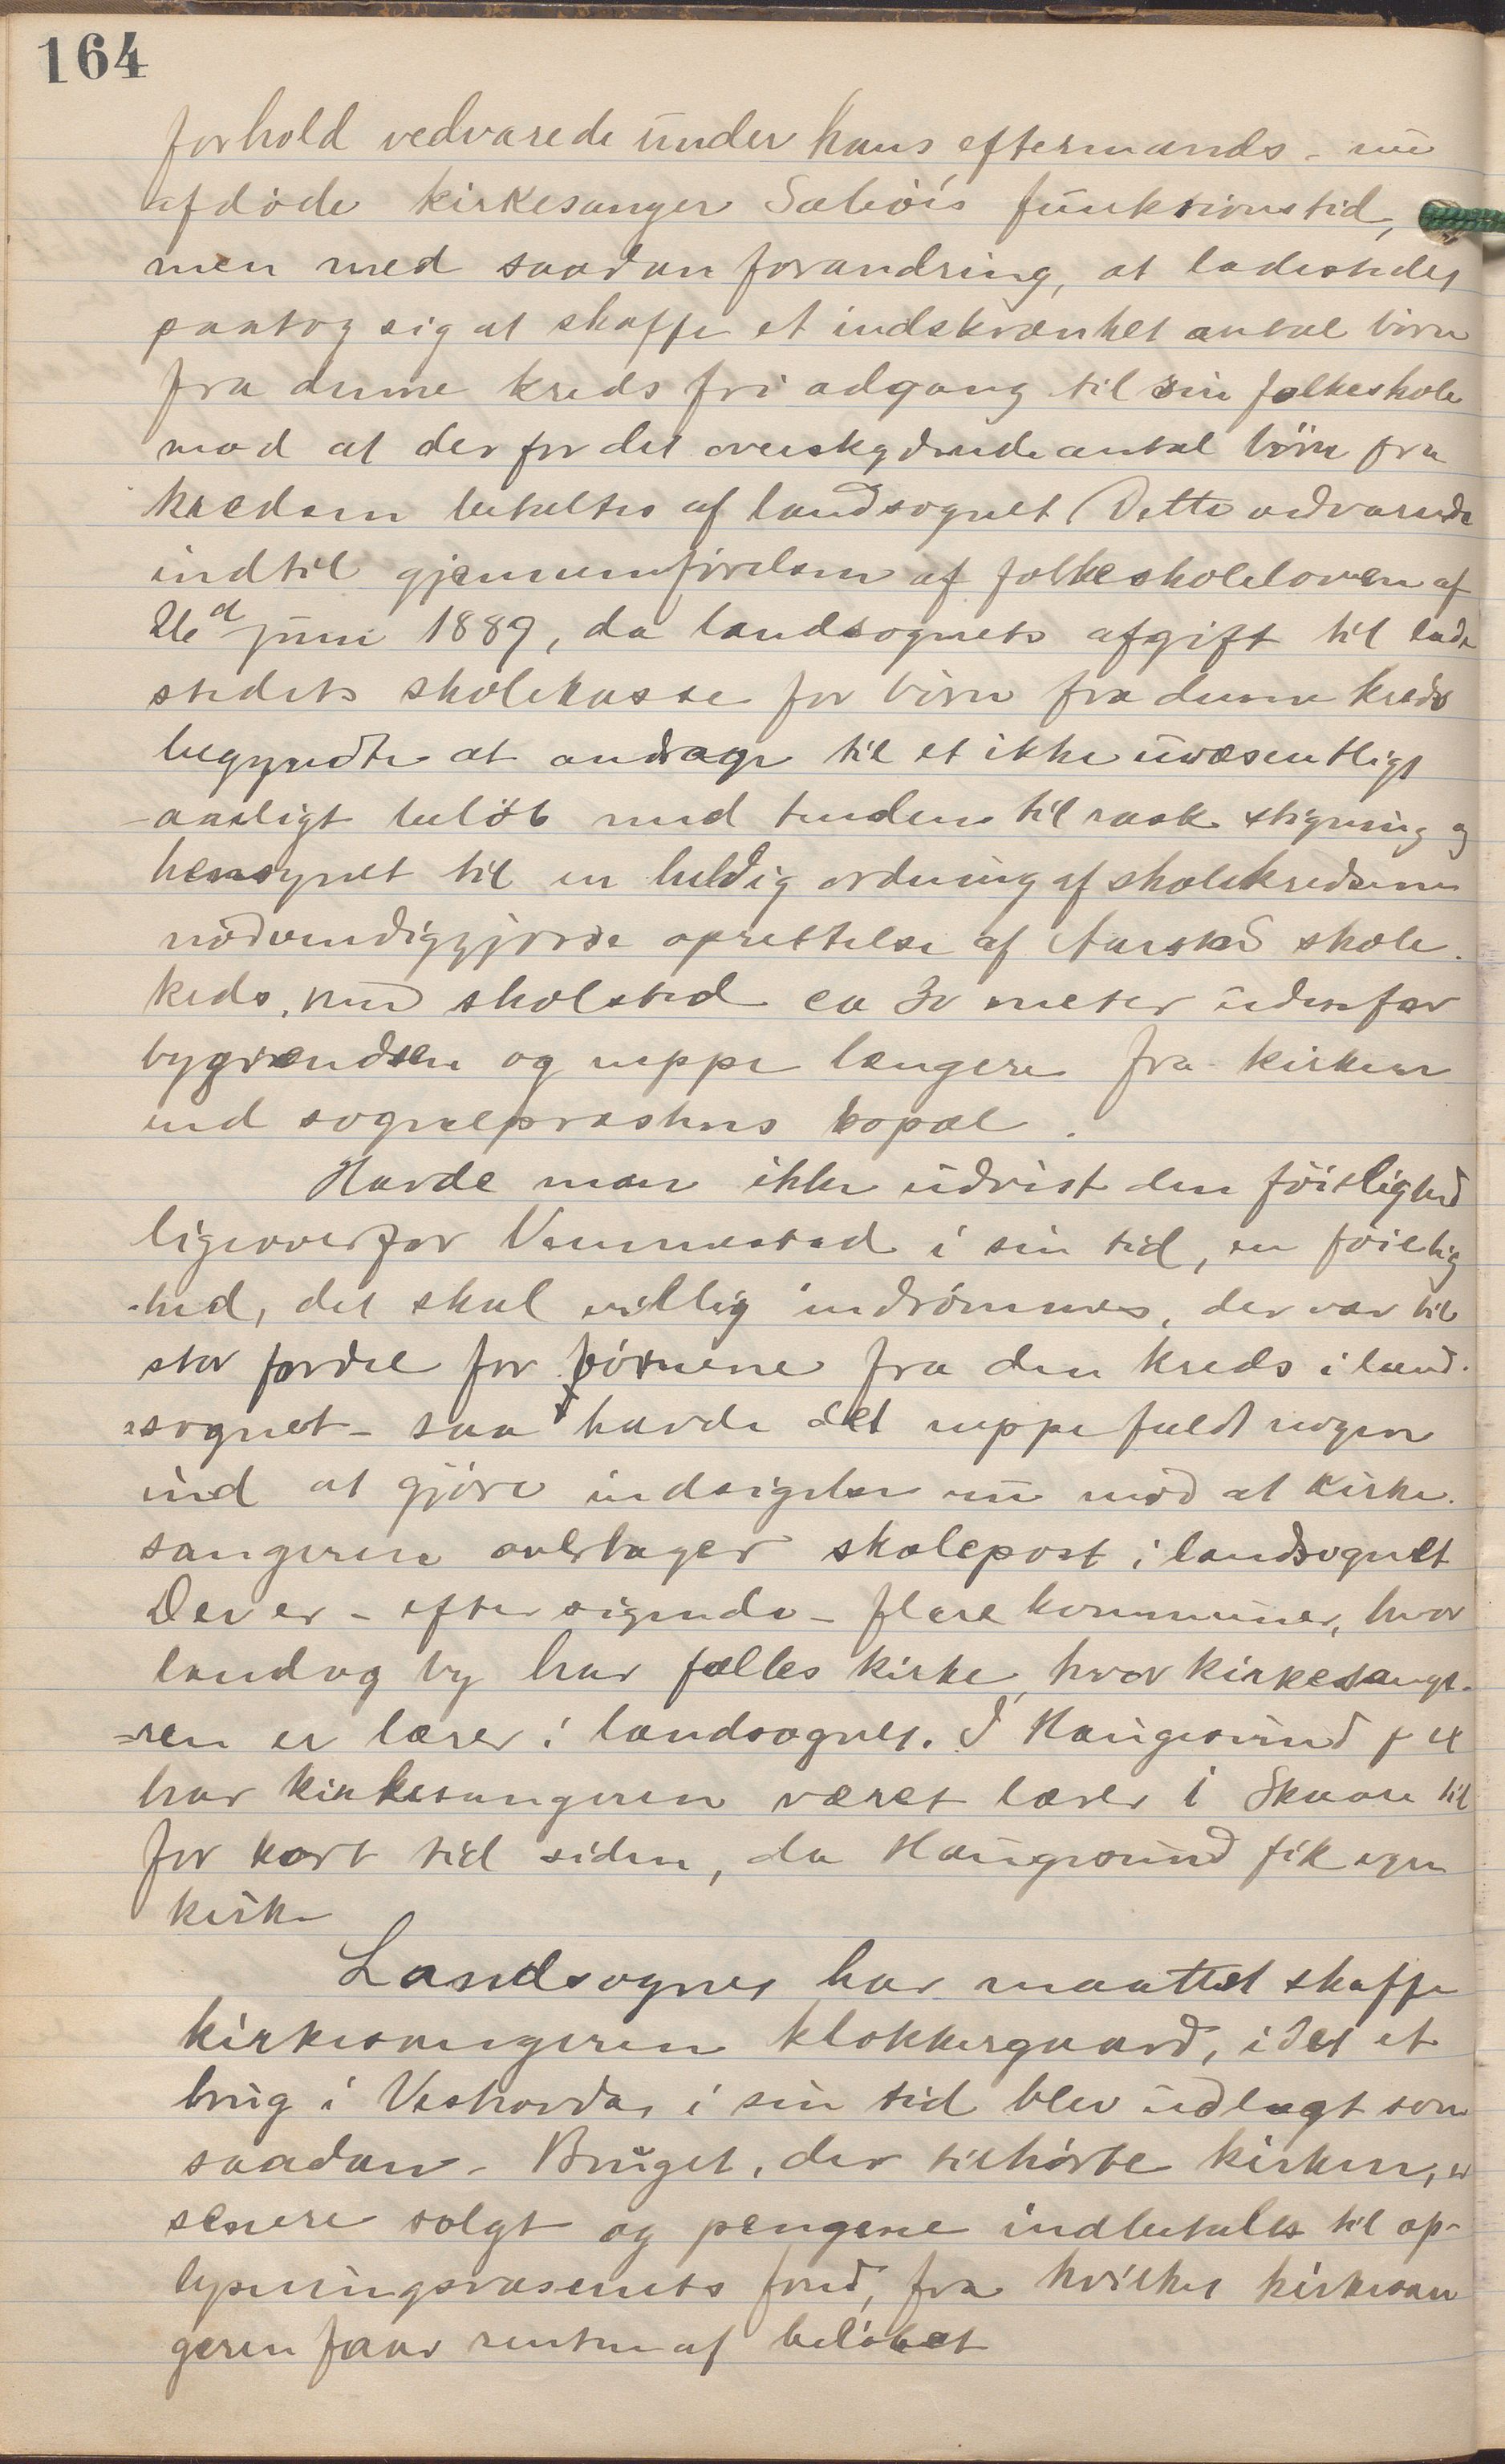 164
forhold vedvarede under hans eftermands - nu
afdøde kirkesanger funktionstid,
men med saadan forandring, at ladestedet
paatog sig at skaffe et indskrænket antal börn
fra denne kreds fri adgang til sin folkeskole
mod at der for det overskydende antal börn fra
kredsen betaltes af landsognet. Dette vedvarede
indtil gjennemförelsen af folkeskoleloven af
26d juni 1889, da landsognets afgift til lade
stedets skolekasse for börn fra denne kreds
begyndte at andrage til et ikke uvæsentligt
aarligt belöb med tendens til rask stigning og
hensynet til en heldig ordning af skolekredsene
nödvendiggjorde oprettelse af Aarstad skole-
keds, med skolsted ca 30 meter udenfor
bygrændsen og neppe længere fra kirken
end sogneprestens bopæl.
Havde man ikke udvist den föielighed
ligeoverfor Vannestad i sin tid, en föielig
-hed, det skal villig indrömmes, der var til
stor fordel for börnene fra den kreds i land-
-sognet - saa havde det neppe faldt nogen
ind at gjöre indsigelse nu mod at kirke-
sangeren overtager skolepost i landsognet
Der er - efter sigende - flere kommuner, hvor
land og by har fælles kirke, hvor kirkesange-
=ren er lærer i landsognet. I Haugesund f ex
har kirkesangeren været lærer i Skaare til
for kort tid siden, da Haugesund fik egen
kirke
Landsognet har maattet skaffe
kirkesangeren klokkergaard, idet et
brug i i sin tid blev udlagt som
saadan - Bruget, der tilhörte kirken, er
senere solgt og pengene indbetales til op-
lysningsvæsenets fond, fra hvilket kirkesan
geren faar renten af belöbet